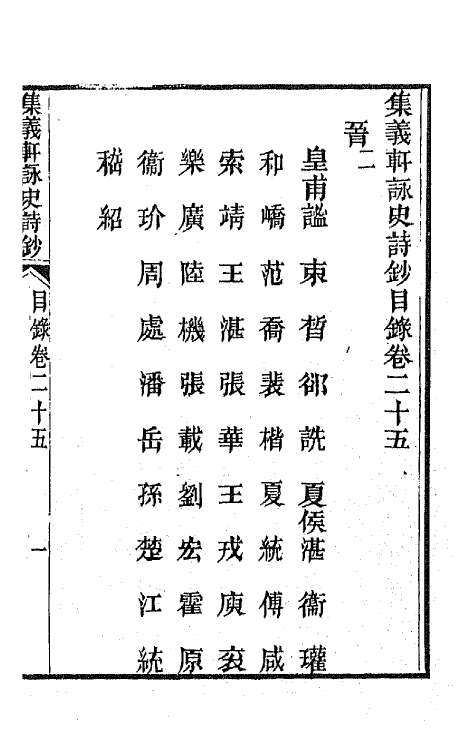 集義軒詠史詩鈔目錄卷二十五
晉二
皇甫謐 束晳 郤詵 夏侯湛 衞瓘
和嶠 范喬 裴楷 夏統 傅咸
索靖 王湛 張華 王戎 庾袞
樂廣 陸機 張載 劉宏 霍原
衞玠 周處 潘岳 孫楚 江統
嵇紹
集義軒詠史詩鈔 目錄卷二十五 一